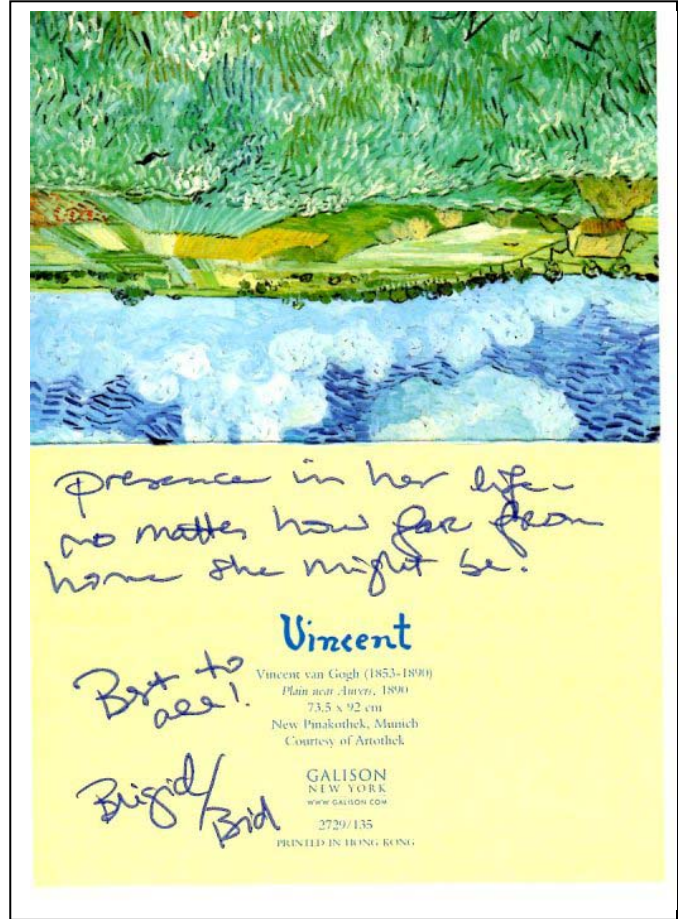 presence in her life -
no matter how far from
home she might be.
Vincent
Best to
all!
Vincent van Gogh (1853-1890)
Plain near Auvers, 1890
73.5 x 92 cm
New Pinakothek, Munich
Courtesy of Artothek
Brigid/
Bid
GALISON
NEW YORK
WWW.GALISON.COM
2729/135
PRINTED IN HONG KONG